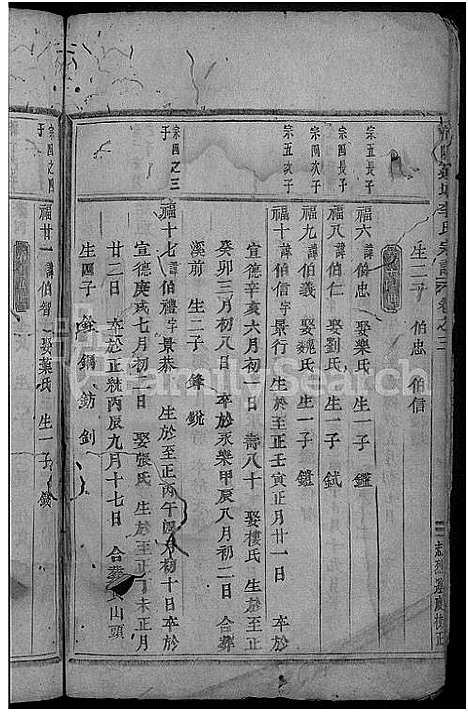 李氏宗譜 卷之三
生二子 伯忠 伯信
宗五長子
福六 諱伯忠 娶樂氏 生一子 鑑
宗四長子
福八 諱伯仁 娶劉氏 生一子 鉽
宗四次子
福九 諱伯義 娶魏氏 生一子 鏈
宗五次子
福十 諱伯信字景行 生於至正壬寅正月廿一日 卒於
宣德辛亥六月初一日 壽八十 娶樓氏 生於至正
癸卯三月初八日 卒於永樂甲辰八月初二日 合葬
溪前 生二子 鋒 銳
宗四之三子
福十七 諱伯禮字景恭 生於至正丙午四月初十日 卒於
宣德庚戌七月初 日 娶張氏 生於至正丁未正月
廿二日 卒於正統丙辰九月十七日 合葬 山頭
生四子 鋼 鈁 釗
宗四之四子
福廿一 諱伯智 娶葉氏 生一子
FamilySearch